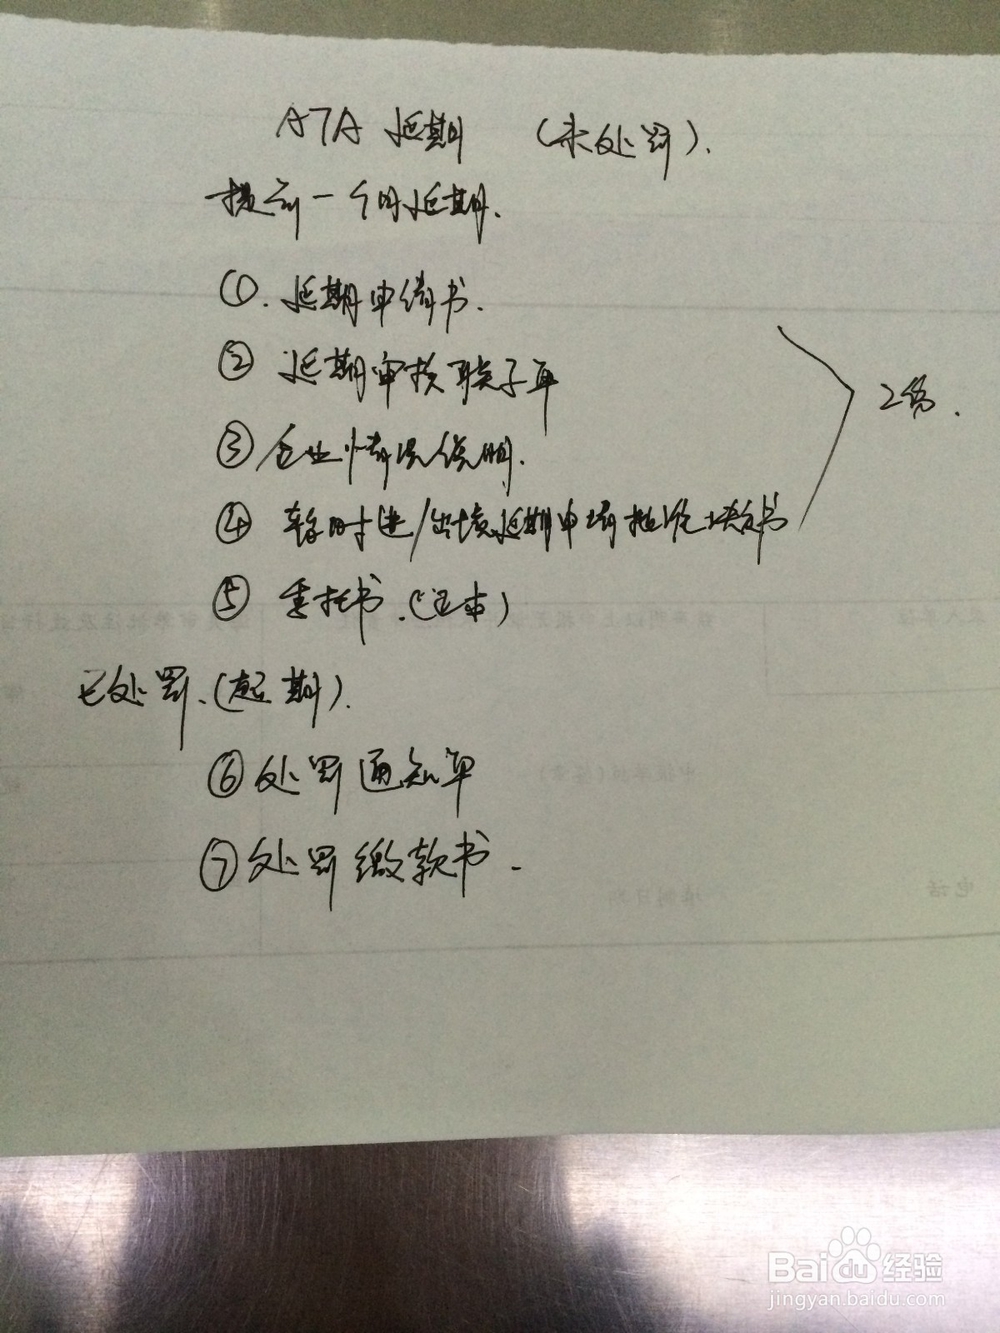 ATA 延期 (未处罚).
提前一个月延期.
①. 延期申请书.
② 延期审核联系单
③ 企业情况说明.
④ 暂时进/出境延期申请批准决定书
2份.
⑤ 委托书.(正本)
已处罚.(超期).
⑥ 处罚通知单
⑦ 处罚缴款书.
电话
填制日期
Baidu 经验
jingyan.baidu.com